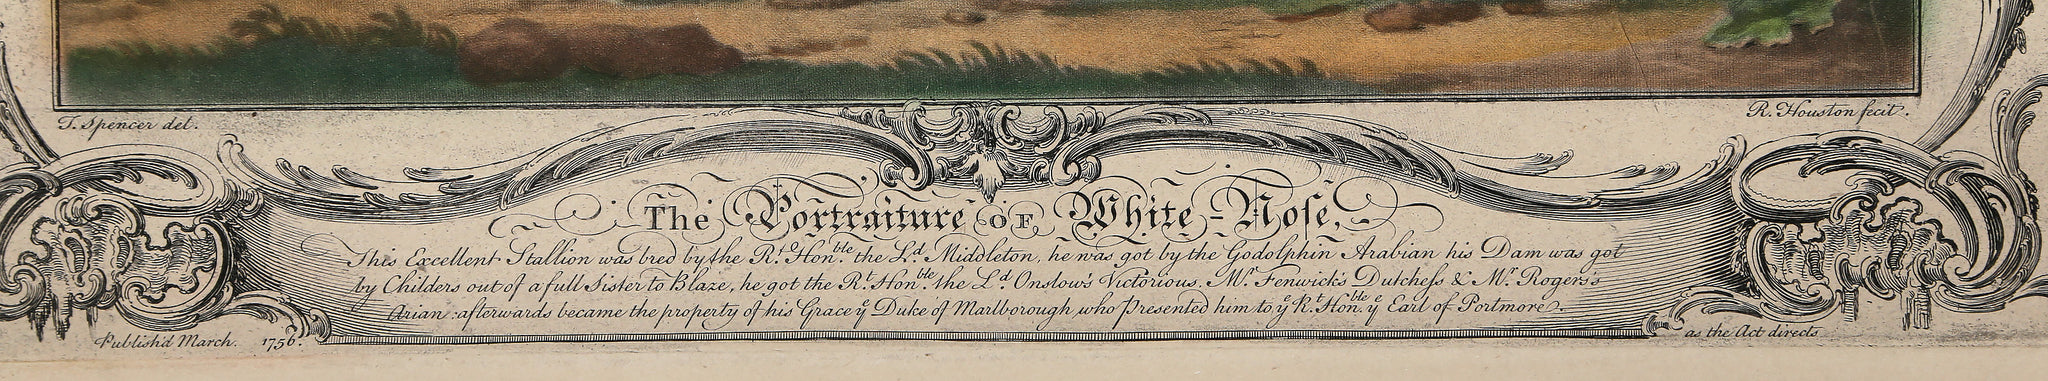 T. Spencer del.
R. Houston fecit.
The Portraiture of White-Nose,
This Excellent Stallion was bred by the Rt. Honble. the Ld. Middleton, he was got by the Godolphin Arabian his Dam was got
by Childers out of a full Sister to Blaze, he got the Rt. Honble. the Ld. Onslow's Victorious, Mr. Fenwick's Dutchess & Mr. Rogers's
Arian: afterwards became the property of his Grace ye Duke of Marlborough who Presented him to ye Rt. Honble. ye Earl of Portmore.
Publish'd March. 1756.
as the Act directs